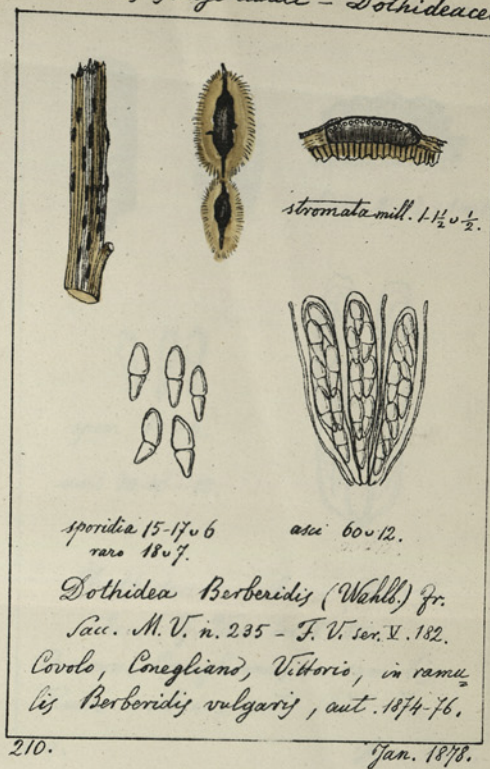 – Dothideace
stromata mill. 1-1½ ʋ ½.
sporidia 15-17 ʋ 6
raro 18 ʋ 7.
asci 60 ʋ 12.
Dothidea Berberidis (Wahlb.) Fr.
Sacc. M. V. n. 235 – F. V. ser. V. 182.
Covolo, Conegliano, Vittorio, in ramu=
lis Berberidis vulgaris, aut. 1874-76.
210.
Jan. 1878.